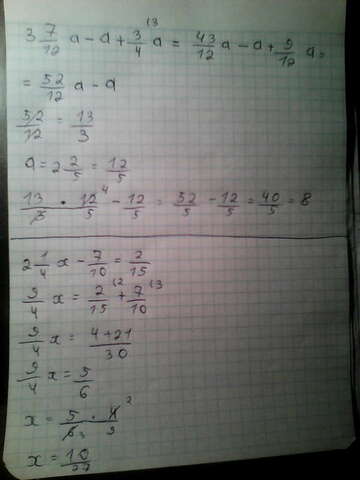 3 7/12 a - a + 3/4 a = 43/12 a - a + 9/12 a =
= 52/12 a - a
52/12 = 13/3
a = 2 2/5 = 12/5
13/3 · 12/5 - 12/5 = 52/5 - 12/5 = 40/5 = 8
2 1/4 x - 7/10 = 2/15
9/4 x = 2/15 + 7/10
9/4 x = 4+21/30
9/4 x = 5/6
x = 5/6 · 4/9
x = 10/27